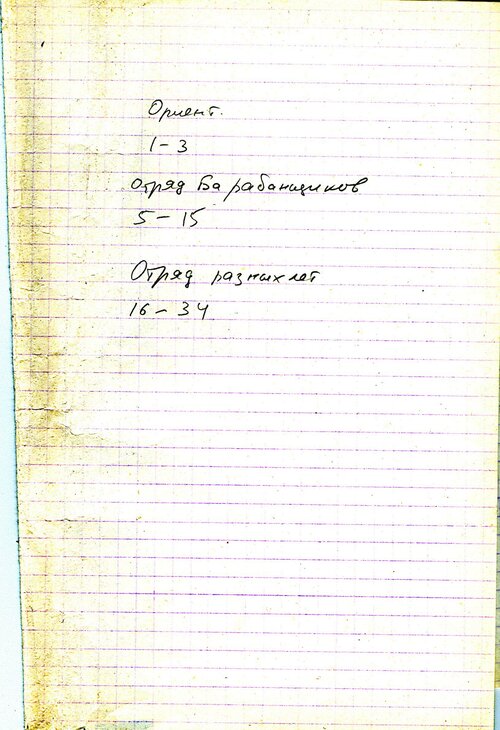 Ориент.
1-3
отряд Барабанщиков
5-15
Отряд разных лет
16-34